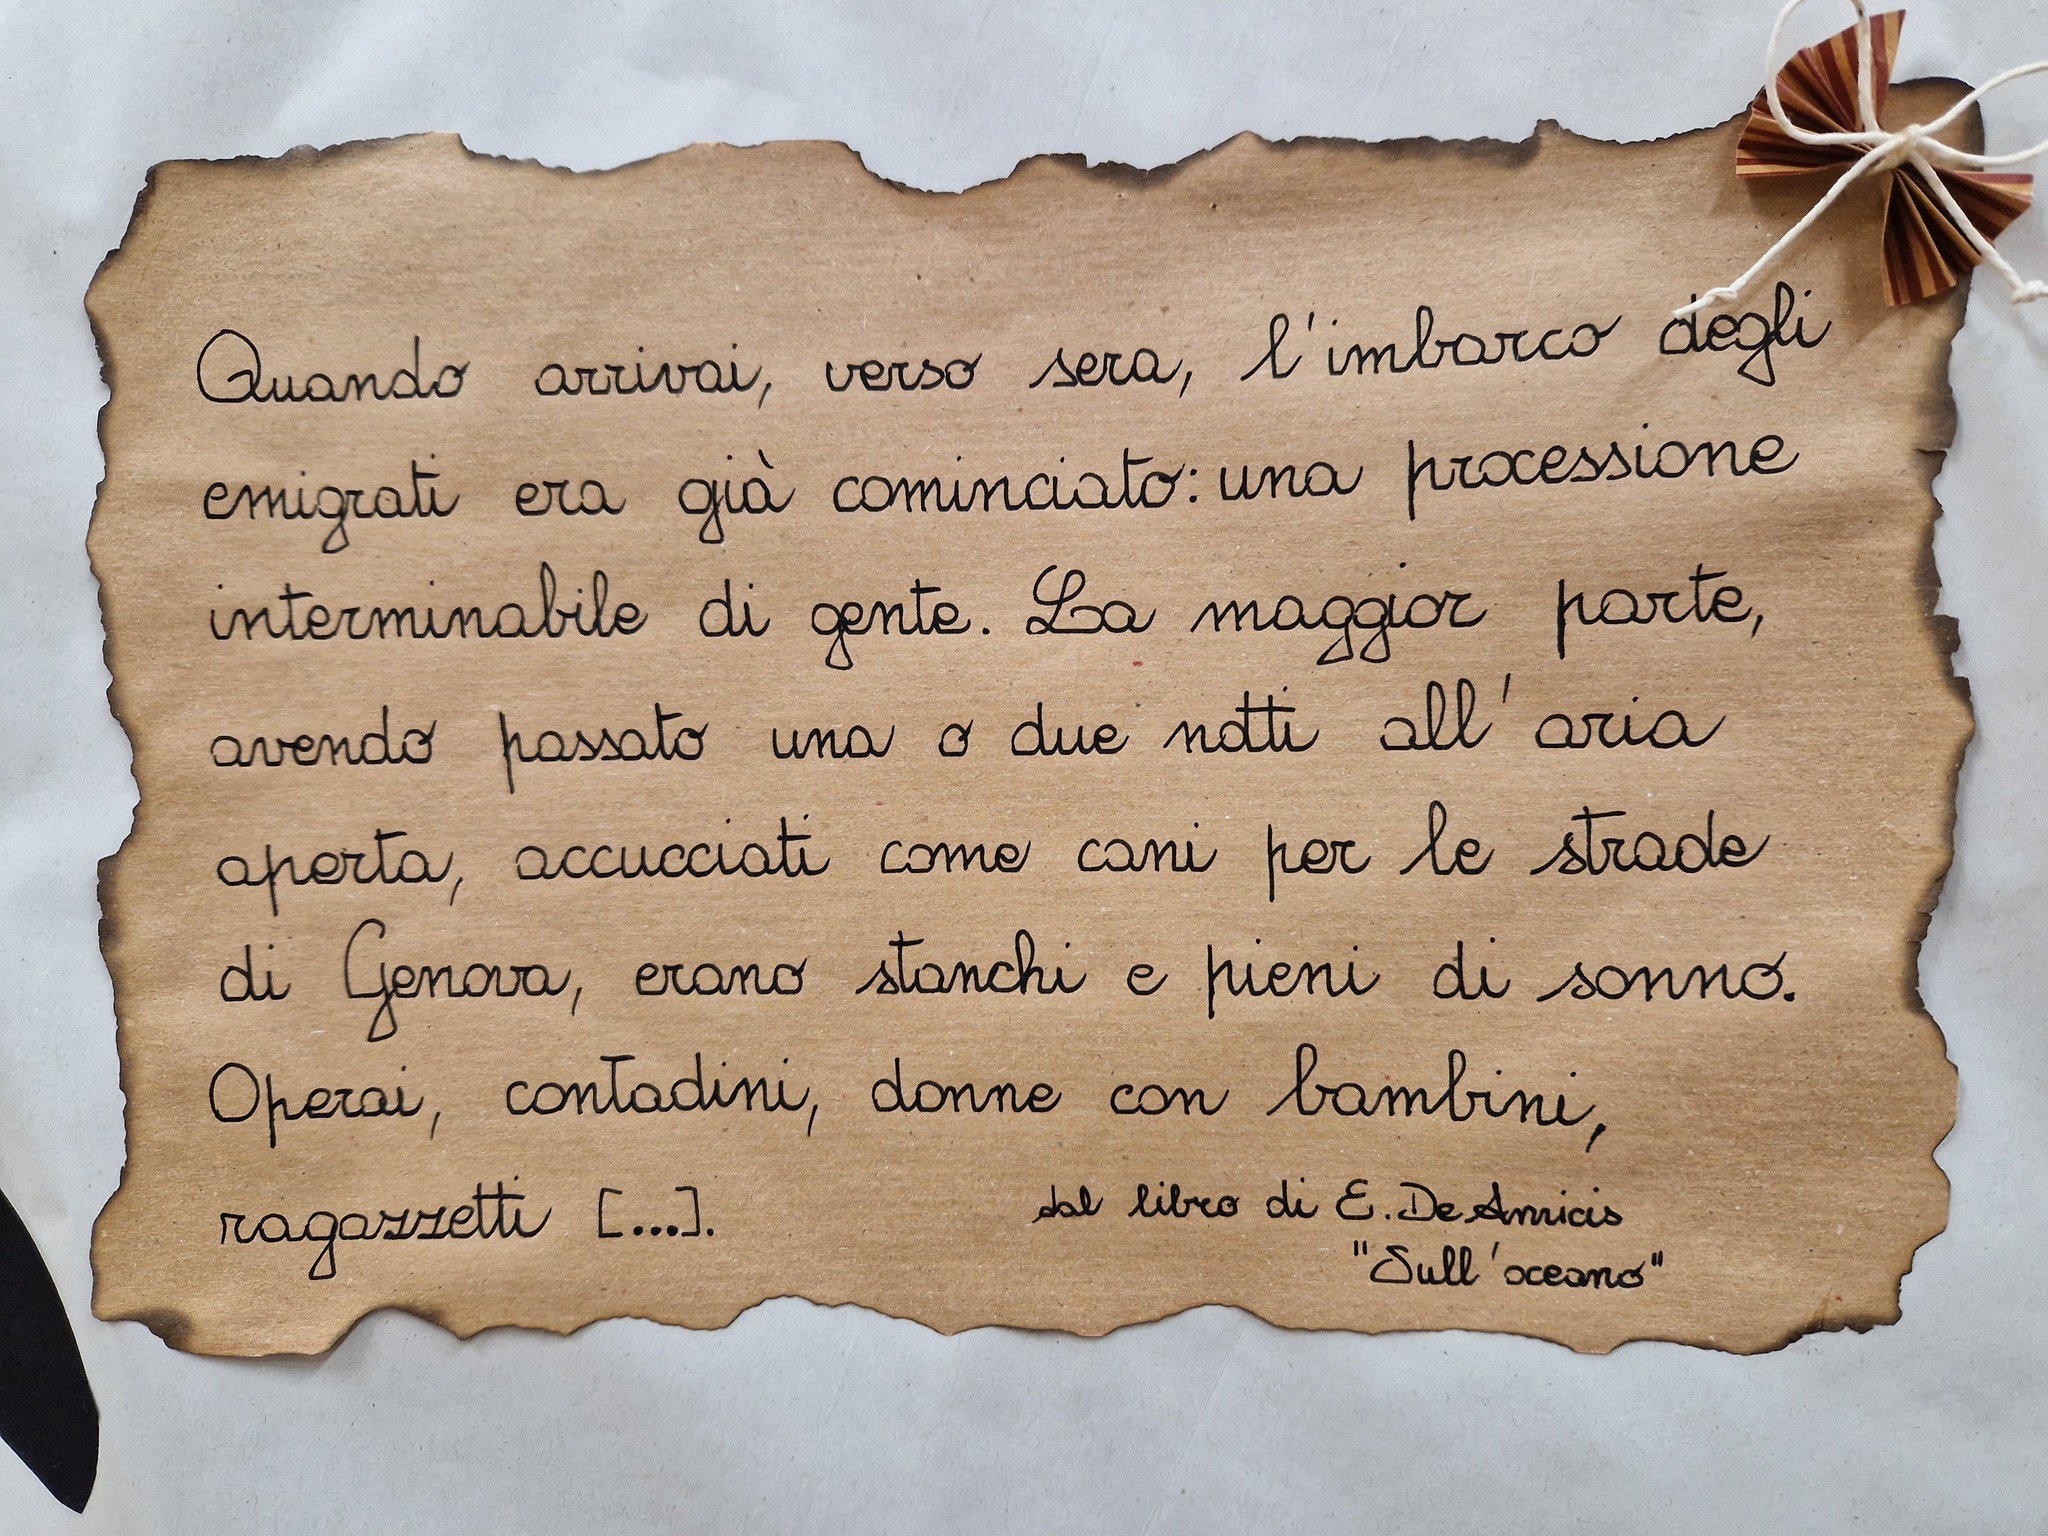 Quando arrivai, verso sera, l'imbarco degli
emigrati era già cominciato: una processione
interminabile di gente. La maggior parte,
avendo passato una o due notti all'aria
aperta, accucciati come cani per le strade
di Genova, erano stanchi e pieni di sonno.
Operai, contadini, donne con bambini,
ragazzetti [...].
dal libro di E. De Amicis
"Sull'oceano"